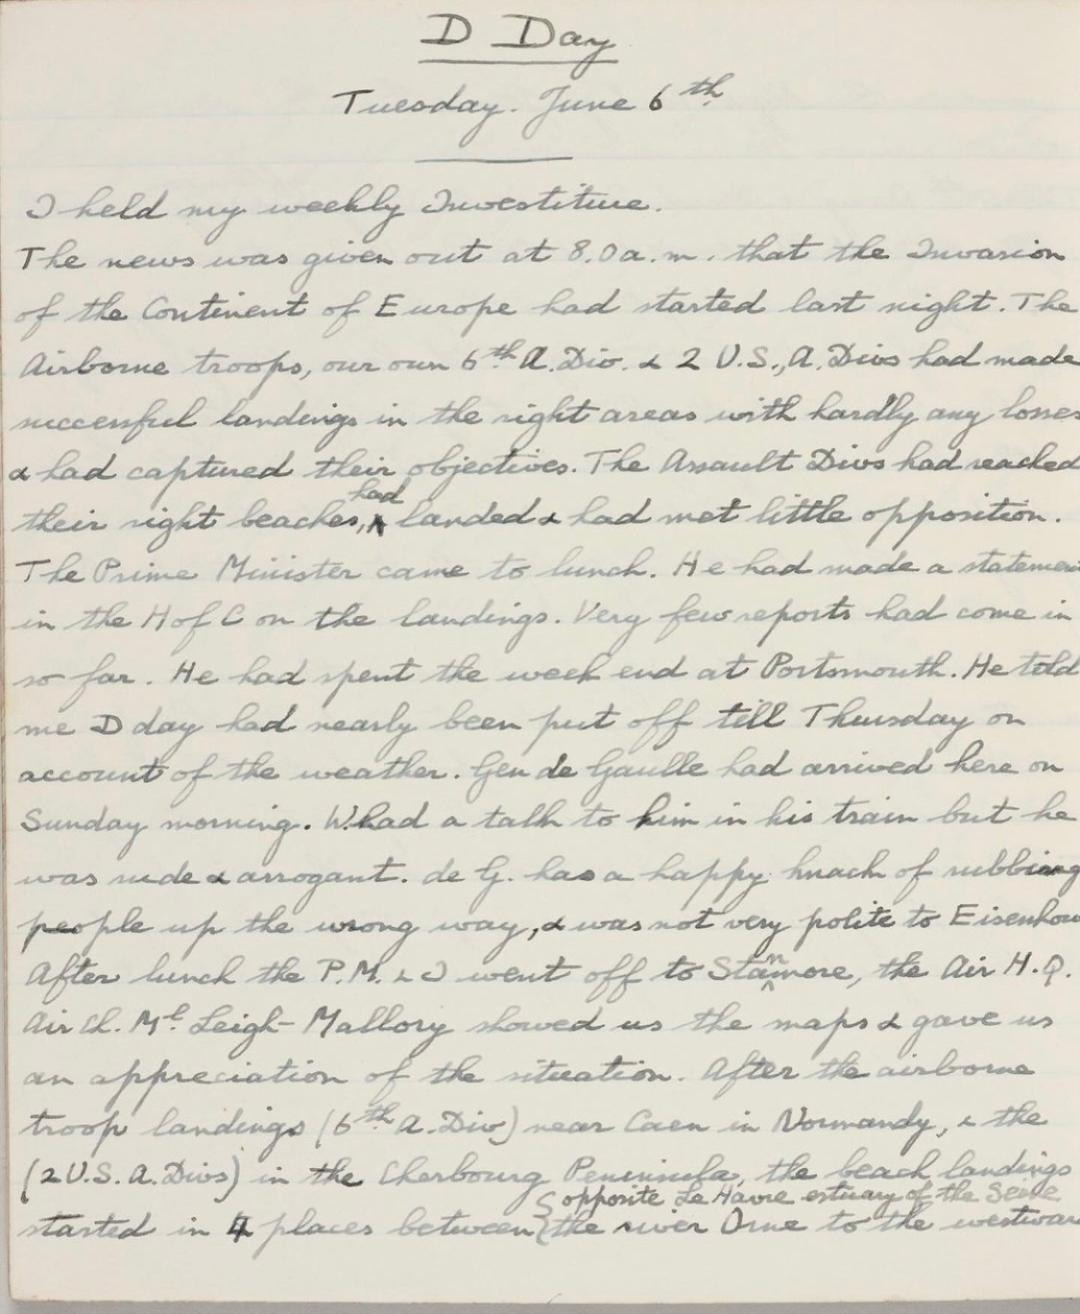 D Day
Tuesday. June 6th
I held my weekly Investiture.
The news was given out at 8.0 a.m. that the Invasion
of the Continent of Europe had started last night. The
Airborne troops, our own 6th A. Div. & 2 U.S., A. Divs had made
successful landings in the right areas with hardly any losses
& had captured their objectives. The Assault Divs had reached
had
their right beaches, landed & had met little opposition.
The Prime Minister came to lunch. He had made a statemen
in the H of C on the landings. Very few reports had come in
so far. He had spent the week end at Portsmouth. He told
me D day had nearly been put off till Thursday on
account of the weather. Gen de Gaulle had arrived here on
Sunday morning. W. had a talk to him in his train but he
was rude & arrogant. de G. has a happy knack of rubbing
people up the wrong way, & was not very polite to Eisenhow
After lunch the P.M. & I went off to Stanmore, the Air H.Q.
Air Ch. Ml Leigh-Mallory showed us the maps & gave us
an appreciation of the situation. After the airborne
troop landings (6th A. Div) near Caen in Normandy, & the
(2 U.S. A. Divs) in the Cherbourg Peninsula, the beach landings
opposite Le Havre estuary of the Seine
started in 4 places between the river Orne to the westwar